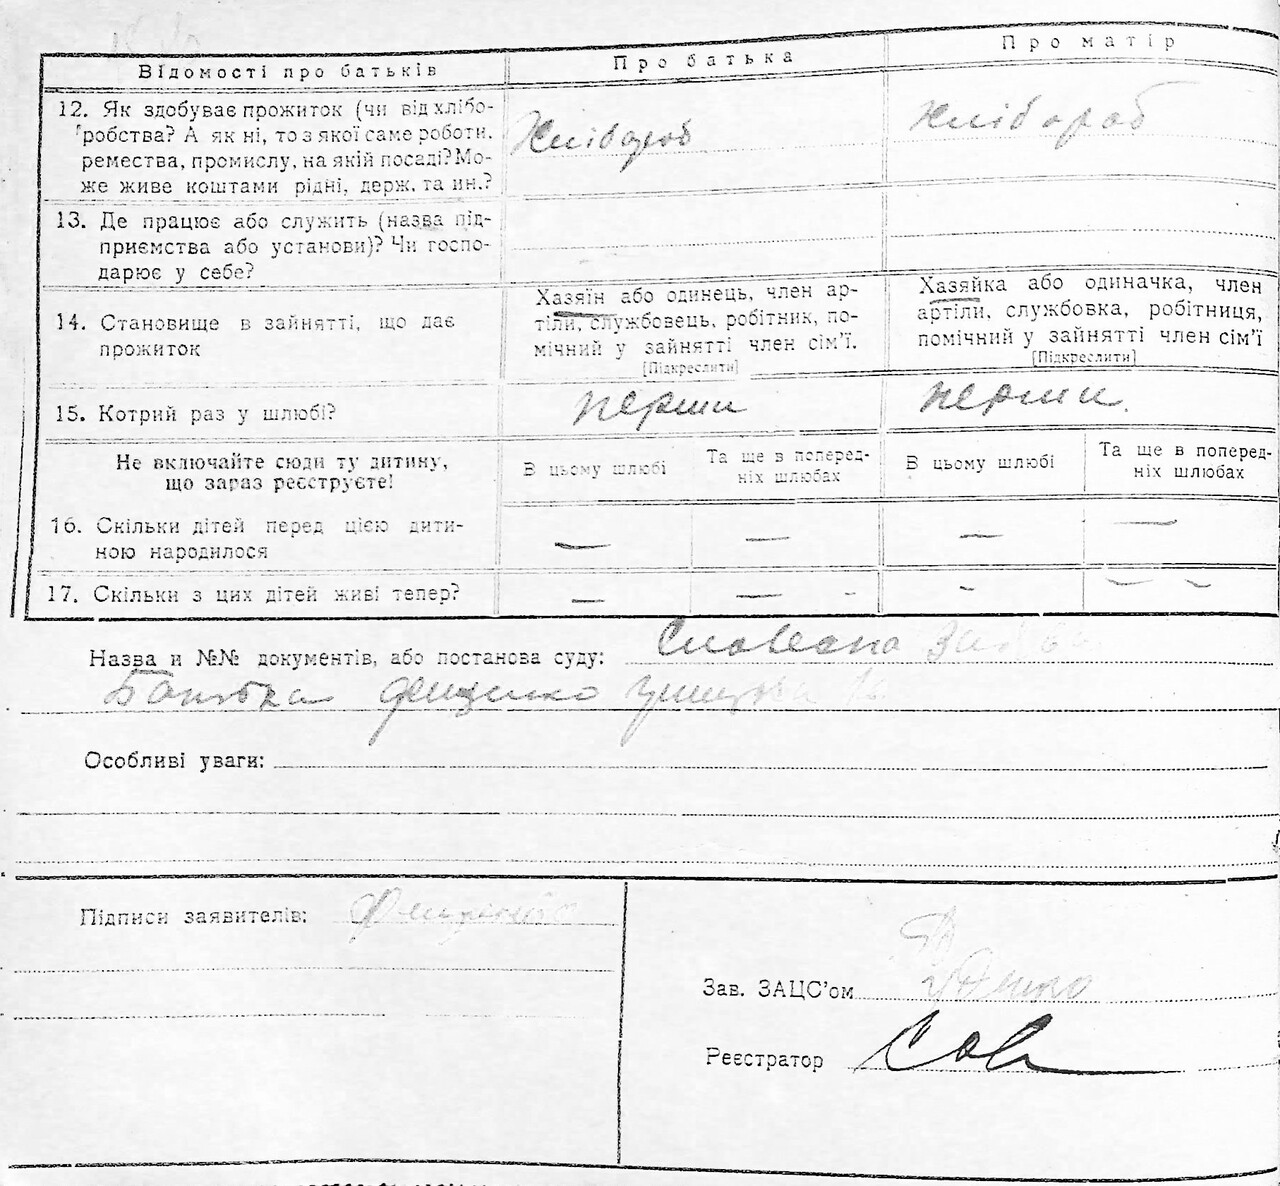 Відомості про батьків
Про батька
Про матір
12. Як здобуває прожиток (чи від хлібо-
робства? А як ні, то з якої саме роботи,
ремества, промислу, на якій посаді? Мо-
же живе коштами рідні, держ. та ин.?
Хлібороб
Хлібороб
13. Де працює або служить (назва під-
приємства або установи)? Чи госпо-
дарює у себе?
14. Становище в зайнятті, що дає
прожиток
Хазяїн або одинець, член ар-
тіли, службовець, робітник, по-
мічний у зайнятті член сім'ї.
[Підкреслити]
Хазяйка або одиначка, член
артіли, службовка, робітниця,
помічний у зайнятті член сім'ї
[Підкреслити]
15. Котрий раз у шлюбі?
перши
перши
Не включайте сюди ту дитину,
що зараз реєструєте!
В цьому шлюбі
Та ще в поперед-
ніх шлюбах
В цьому шлюбі
Та ще в поперед-
ніх шлюбах
16. Скільки дітей перед цією дити-
ною народилося
— — — —
17. Скільки з цих дітей живі тепер?
— — - - — -
Назва и №№ документів, або постанова суду: Словесна
Батька
Особливі уваги:
Підписи заявителів:
Зав. ЗАЦС'ом
Реєстратор